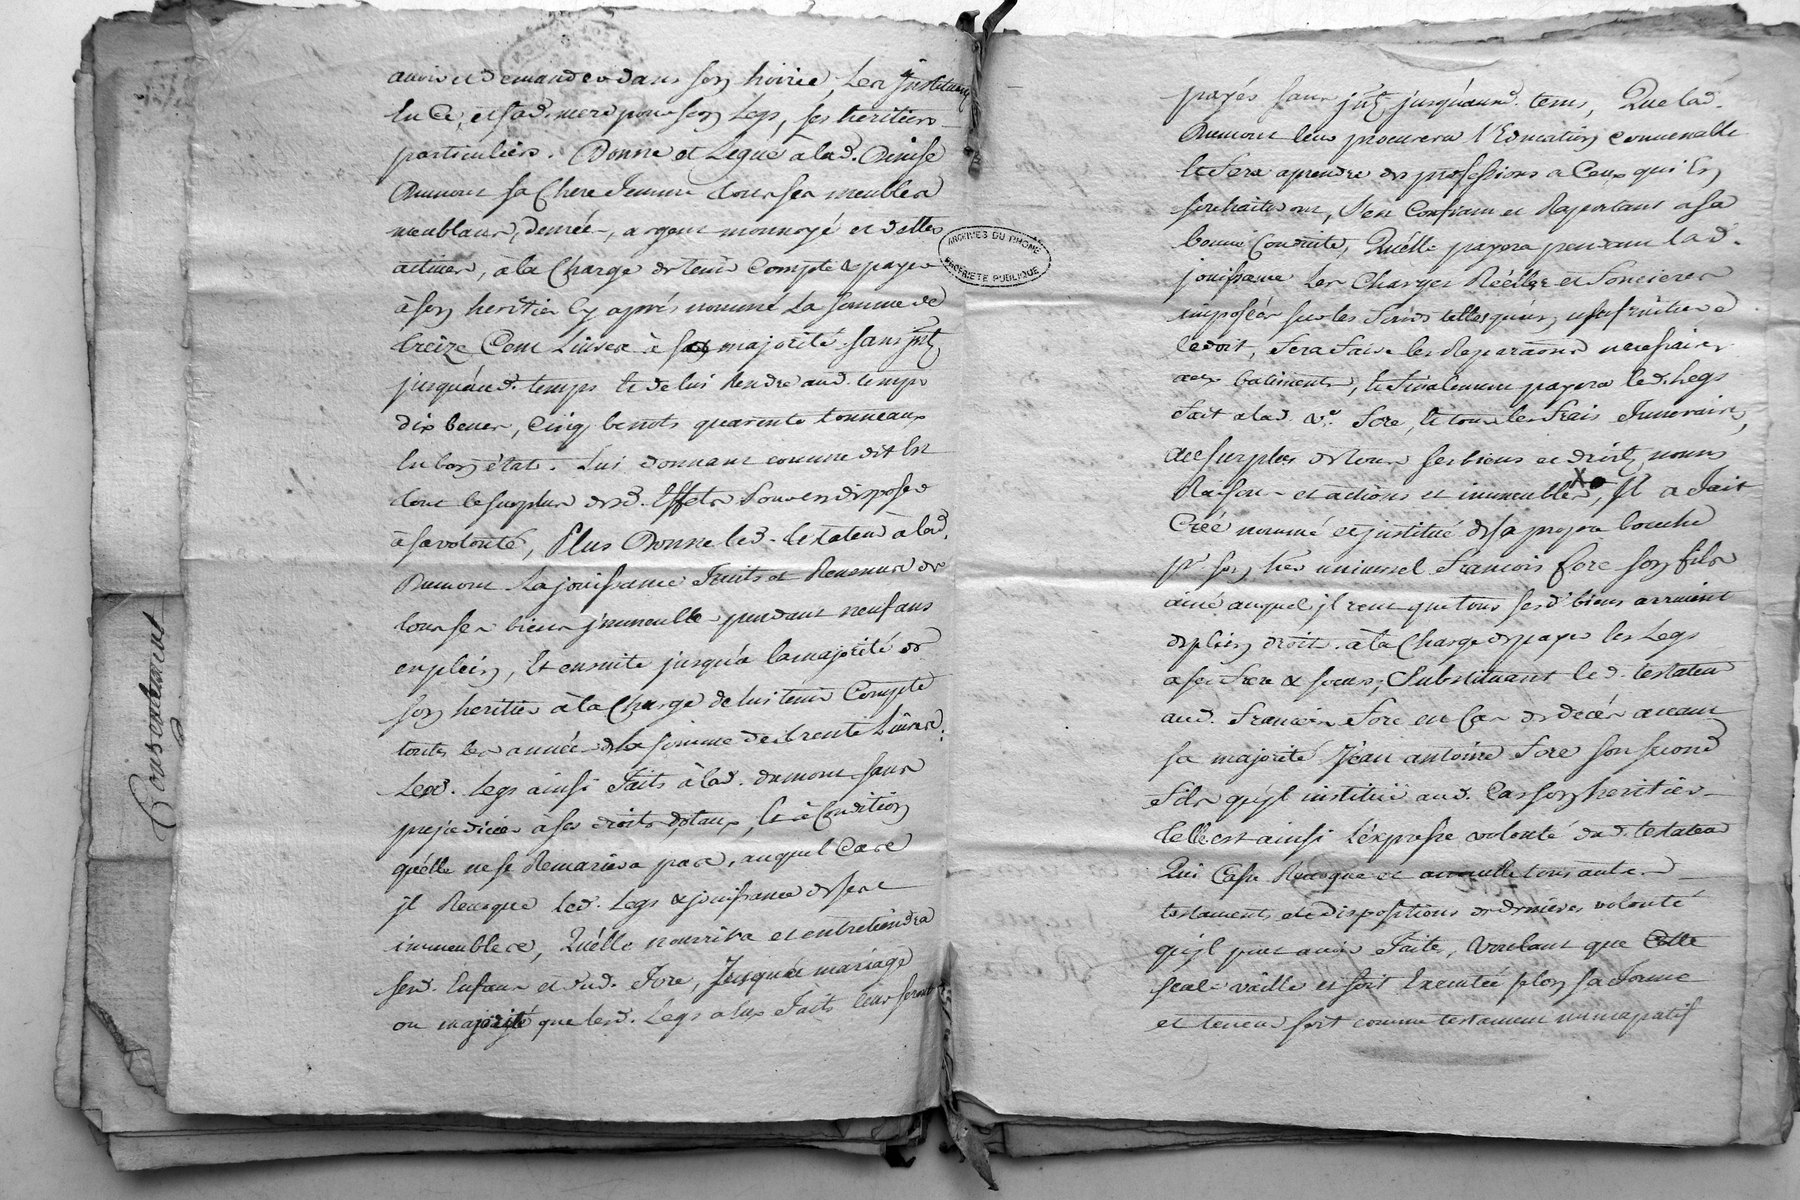 avoir et demander dans son hoirie, Les instituant
En Ce, et sad. mere pour son Legs, ses heritiers
particuliers. Donne et Legue à lad. Denise
Dumont sa Chere femme tous ses meubles
meublans, denrées, argent monnoyé et dettes
actives, à la Charge de tenir Compte & payer
à son heritier Cy aprés nommé La somme de
treize Cent Livres à sa majorité sans jnt.
jusqu'aud. temps et de lui Rendre aud. temps
dix benes, Cinq benots quarente tonneaux
En bon état. Lui donnant comme dit Est
tout le surplus desd. Effets Pour en disposer
à sa volonté, Plus Donne led. testateur à lad.
Dumont La jouissance fruits et Revenus de
tous ses biens jmmeubles pendant neuf ans
en plein, Et ensuite jusqu'à la majorité de
son heritier à la Charge de lui tenir Compte
toutes les années de la somme de trente Livres.
Lesd. Legs ainsi faits à lad. dumont sans
prejudicier à ses droits dotaux, Et à Condition
qu'elle ne se Remariera pas, auquel Cas
jl Revoque led. Legs & jouissance de ses
immeubles, Qu'elle nourrira et entretiendra
sesd. Enfans et dud. fore, Jusqu'à mariage
ou majorité que lesd. Legs a eux faits leur seront
Consentement
ARCHIVES DU RHONE
PROPRIETE PUBLIQUE
payés sans jnt. jusqu'aud. tems, Que lad.
Dumont leur procurera l'Education convenable
Et fera aprendre des professions a Ceux qui En
souhaiteront, S'en Confiant et Raportant a sa
bonne Conduite, Qu'elle payera pendant lad.
jouissance Les Charges Réelles et foncieres
imposées sur les fonds telles qu'un usufruitiere
le doit, fera faire les Reparaons necessaires
aux batiments, Et finalement payera led. Legs
fait a lad. ve. fore, Et tous les frais funeraires,
du surplus de tous ses biens et droits, noms
Raisons et actions et immeubles, Jl a fait
Créé nommé et jnstitué de sa propre bouche
pr. son her. universel francois fore son fils
ainé auquel jl veut que tous sesd. biens arrivent
de plein droit. à la Charge de payer les Legs
a ses frere & soeurs, Substituant led. testateur
aud. francois fore en Cas de décès avant
sa majorité Jean antoine fore son second
fils qu'jl institue aud. Cas son heritier
telle est ainsi L'expresse volonté dud. testateur
Qui Casse Revoque et annulle tous autres
testaments et dispositions de derniere volonté
qu'jl peut avoir faite, Voulant que Cette
seule vaille et soit Executée selon sa forme
et teneur soit comme testament nuncupatif